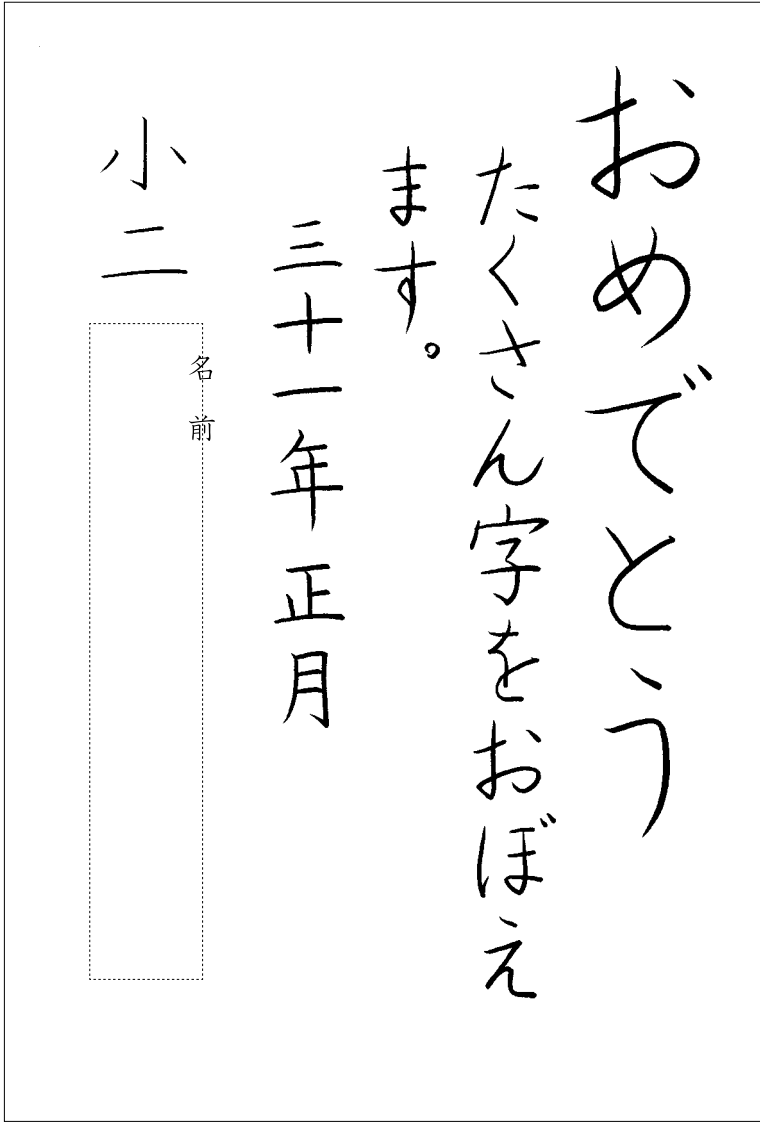 おめでとう
たくさん字をおぼえ
ます。
三十一年正月
小二
名前